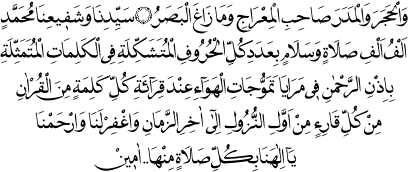 وَالْحَجَرَ وَالْمَدَرَ صَاحِبِ الْمِعْرَاجِ وَمَا زَاغَ الْبَصَرُ ۞ سَيِّدِنَا وَشَفِيعِنَا مُحَمَّدٍ
اَلْفُ اَلْفِ صَلَاةٍ وَسَلَامٍ بِعَدَدِ كُلِّ الْحُرُوفِ الْمُتَشَكِّلَةِ فِى الْكَلِمَاتِ الْمُتَمَثِّلَةِ
بِاِذْنِ الرَّحْمٰنِ فِى مَرَايَا تَمَوُّجَاتِ الْهَوَاءِ عِنْدَ قِرَائَةِ كُلِّ كَلِمَةٍ مِنَ الْقُرْاٰنِ
مِنْ كُلِّ قَارِءٍ مِنْ اَوَّلِ النُّزُولِ اِلٰى اٰخِرِ الزَّمَانِ وَاغْفِرْلَنَا وَارْحَمْنَا
يَٓا اِلٰهَنَا بِكُلِّ صَلَاةٍ مِنْهَا.. اٰمِينَ